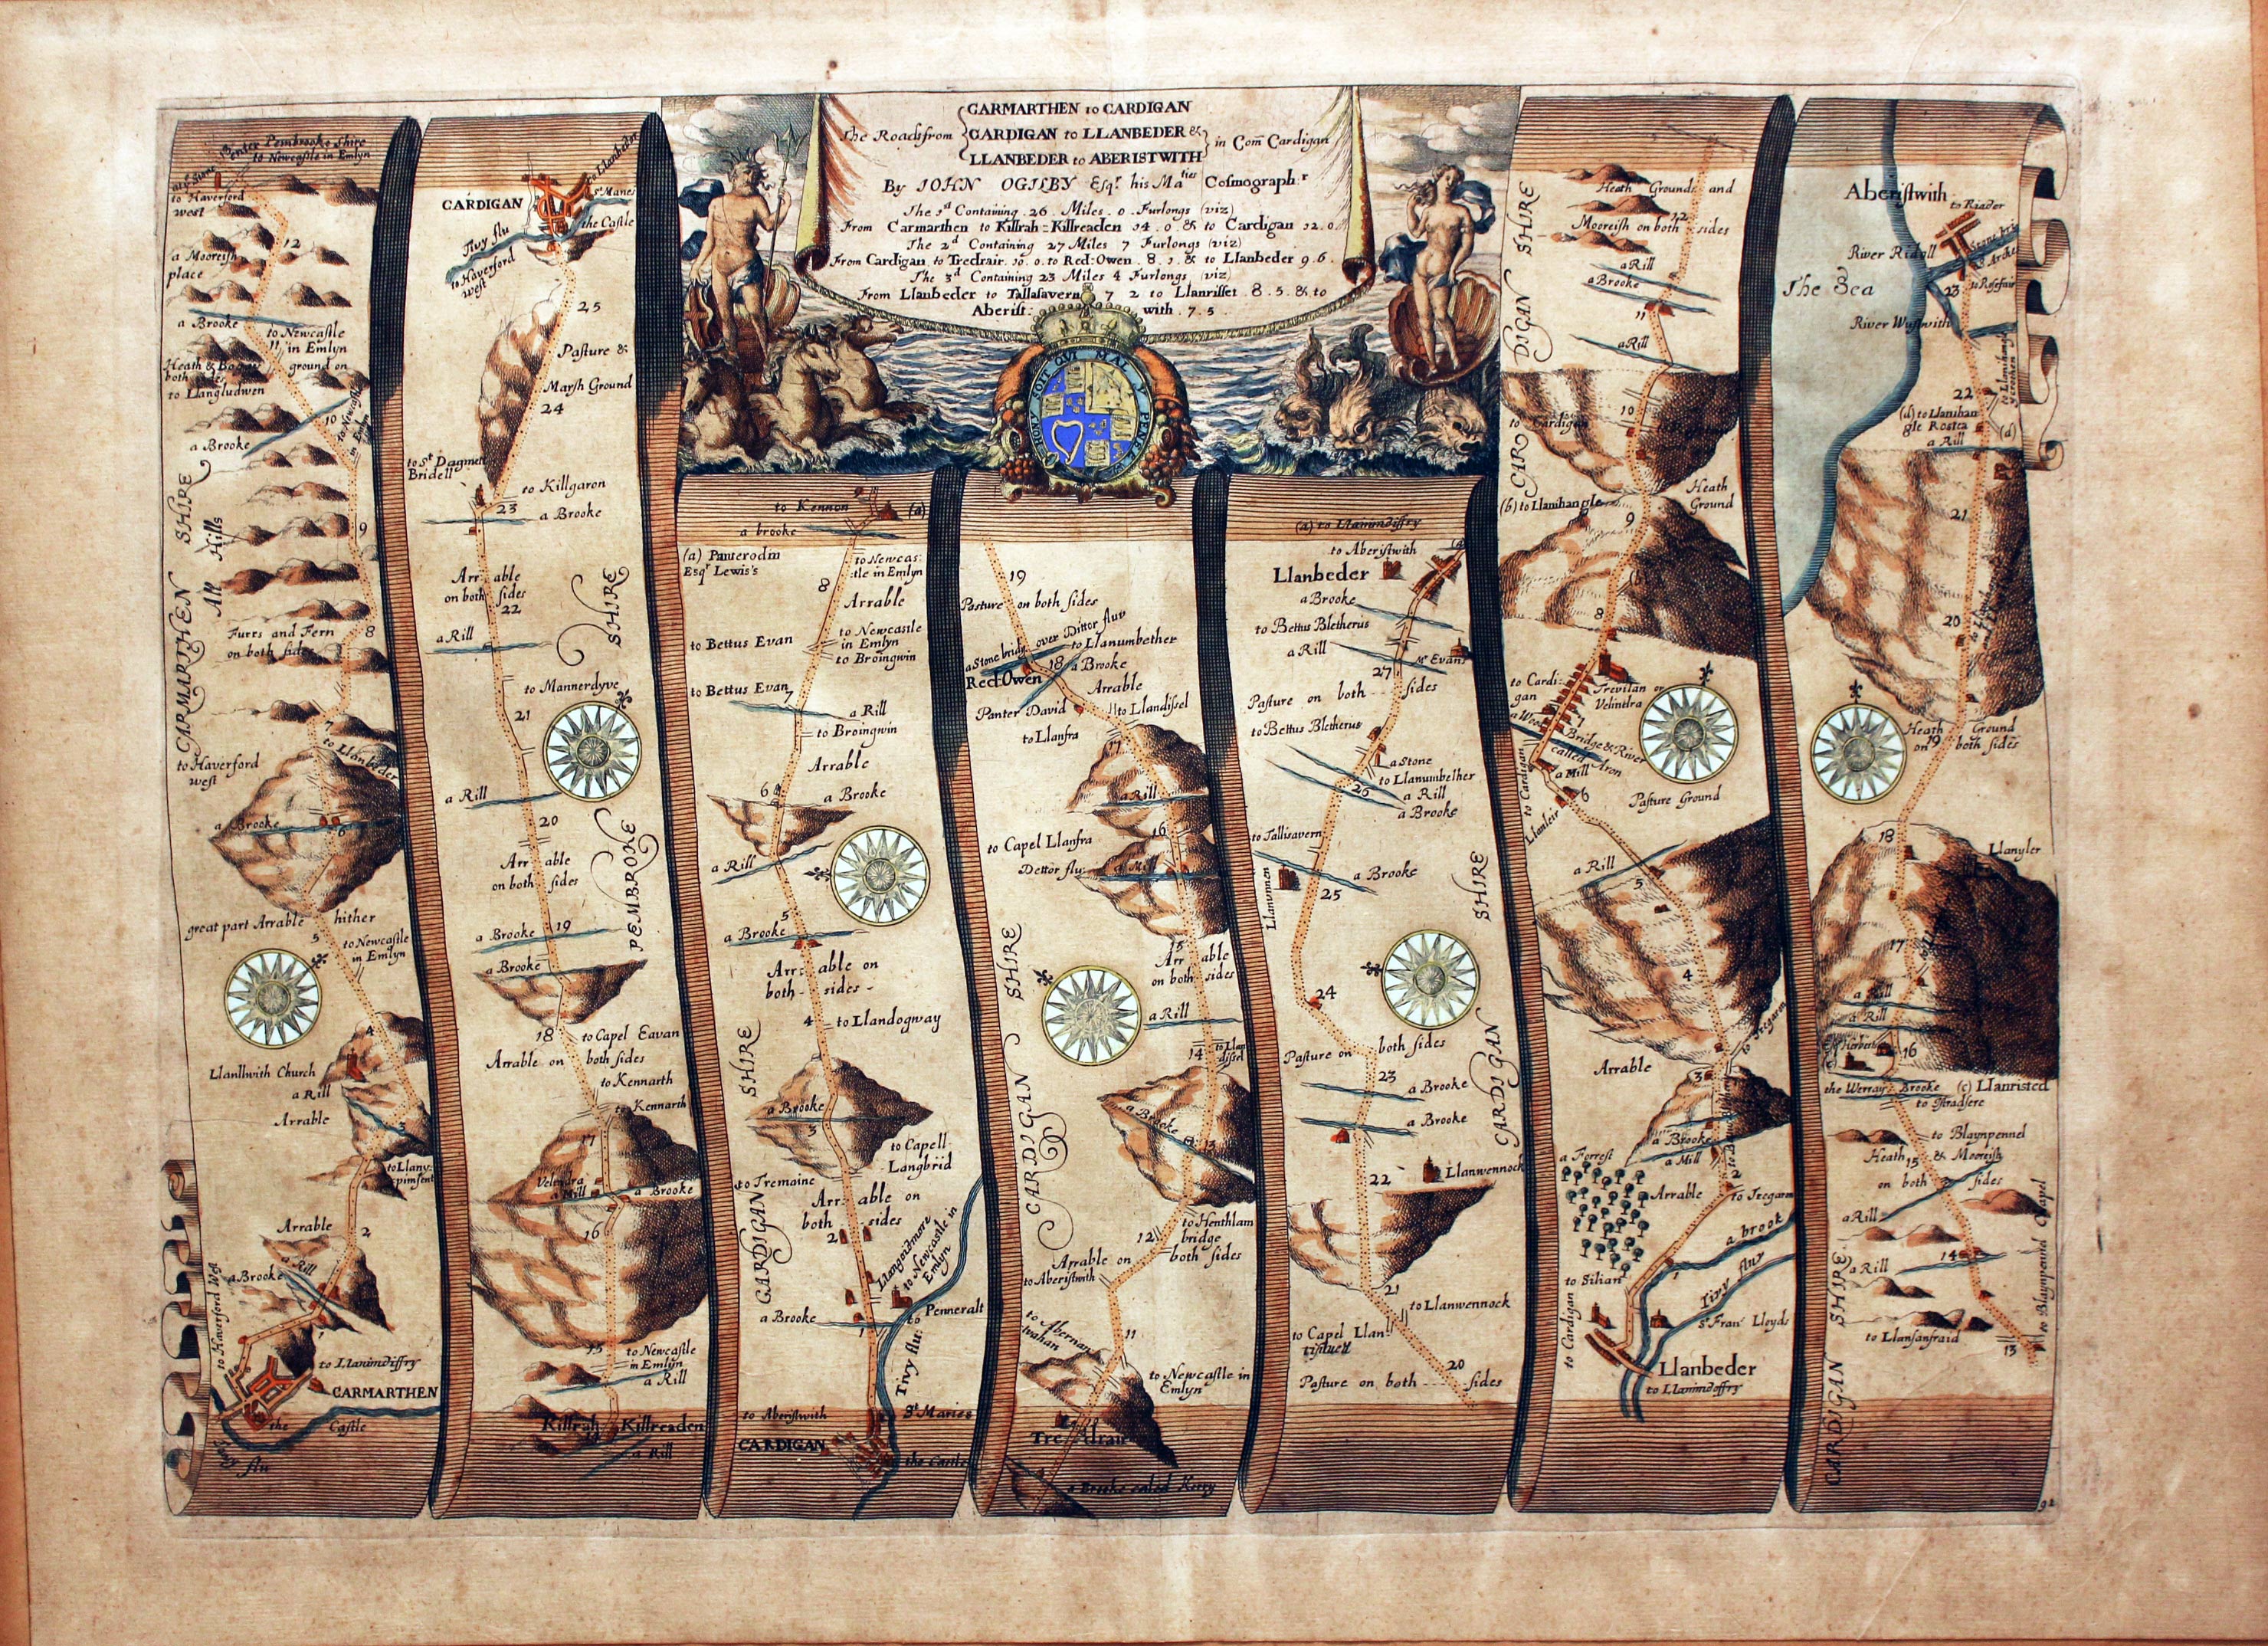 The Roads from
CARMARTHEN to CARDIGAN
CARDIGAN to LLANBEDER &
LLANBEDER to ABERISTWITH
in Com Cardigan
By IOHN OGILBY Esqr. his Maties Cosmographr
The 1st Containing 26 Miles 0 Furlongs (viz)
From Carmarthen to Killrah=Killreaden 14 . 0 & to Cardigan 12 . 0 .
The 2d Containing 27 Miles 7 Furlongs (viz)
From Cardigan to Tredrair. 10. 0. to Red:Owen. 8. 1. & to Llanbeder 9 6.
The 3d Containing 23 Miles 4 Furlongs (viz)
From Llanbeder to Tallasavern 7 2 to Llanrisset 8 . 5 . & to
Aberist: with . 7 . 5
HONI SOIT QUI MAL Y PENSE
enter Pembrooke Shire
to Newcastle in Emlyn
to Haverford
west
12
a Mooreish
place
a Brooke
to Newcastle
in Emlyn
11
Heath & Boggy ground on
both sides
to Llangludwen
10
to Newcastle
in Emlyn
a Brooke
CARMARTHEN SHIRE
9
Hills
8
Furrs and Fern
on both sides
7
to Llanbeder
to Haverford
west
a Brooke
6
great part Arrable hither
5
to Newcastle
in Emlyn
4
Llanllwith Church
a Rill
Arrable
3
to Llany:
pimsent
Arrable
2
a Rill
a Brooke
to Haverford West
1
to Llanimdiffry
CARMARTHEN
the Castle
flu
CARDIGAN
to Llanbeder
St Maries
the Castle
Tivy flu
to Haverford
west
25
Pasture &
Marsh Ground
24
to St Dagmell
Bridell
to Killgaron
23
a Brooke
Arrable
on both sides
22
a Rill
PEMBROKE SHIRE
to Mannerdyve
21
a Rill
20
Arrable
on both sides
a Brooke
19
a Brooke
18
to Capel Eavan
Arrable on both sides
to Kennarth
to Kennarth
17
Velendra
a Mill
a Brooke
16
15
to Newcastle
in Emlyn
a Rill
Killrah Killreaden
a Rill
to Kennon
(a)
a brooke
(a) Panterodin
Esqr Lewis's
to Newcas:
tle in Emlyn
8
Arrable
to Bettus Evan
to Newcastle
in Emlyn
to Broingwin
to Bettus Evan
7
a Rill
to Broingwin
Arrable
6
a Brooke
a Rill
5
a Brooke
Arrable on
both sides
4
to Llandogway
CARDIGAN SHIRE
a Brooke
3
to Capell
Langbrid
to Tremaine
Arrable on
both sides
2
Llangordmore
to Newcastle in
Emlyn
to Penneralt
a Brooke
1
Tivy flu:
to Aberistwith
St Maries
CARDIGAN
the Castle
19
Pasture on both sides
a Stone bridg over Dittor fluv
to Llanumbether
18
a Brooke
Red:Owen
Arrable
Panter David
to Llandissel
to Llanfra
17
a Rill
16
to Capel Llanfra
Dettor flu:
a Mill
15
Arrable
on both sides
a Rill
14
to Llan
dissel
CARDIGAN SHIRE
a Brooke
13
12
to Henthlam
bridge
Arrable on both sides
to Aberistwith
11
to Newcastle in
Emlyn
Tredrair
a Brooke caled Kerry
(a) to Llanimdiffry
to Aberistwith
(a)
Llanbeder
a Brooke
to Bettus Bletherus
a Rill
Mr Evans
27
Pasture on both sides
to Bettus Bletherus
a Stone
to Llanumbether
26
a Rill
a Brooke
to Tallisavern
a Brooke
25
Llanunnen
CARDIGAN SHIRE
24
Pasture on both sides
23
a Brooke
a Brooke
22
Llanwennock
21
to Llanwennock
to Capel Llan
20
Pasture on both sides
Heath Grounds and
12
Mooreish on both sides
a Rill
a Brooke
11
a Rill
CARDIGAN SHIRE
10
to Cardigan
(b) to Llanihangle
Heath
Ground
9
(b)
8
to Cardi:
gan
Trevilan or
Velintra
7
Bridge & River
called Aron
to Cardigan
a Mill
Llanleir
6
Pasture Ground
a Rill
5
4
to Tregaron
Arrable
3
a Brooke
a Mill
2
a Forrest
Arrable
to Tregarn
a brook
to Silian
1
Tivy fluv
to Cardigan
Sr Fran: Lloyds
Llanbeder
to Llanimdoffry
Aberistwith
to Riader
River Ridoll
The Sea
23
River Wustwith
22
(d) to Llanihan
gle Rosted
(d)
a Rill
21
20
Heath Ground
on both sides
19
18
Llanyler
17
a Rill
a Rill
16
the Werray Brooke
(c) Llanristed
to Stradsere
to Blaynpennel
Heath & Mooreish
15
on both sides
a Rill
14
a Rill
to Llansanfraid
13
to Blaynpennal Chapel
CARDIGAN SHIRE
92